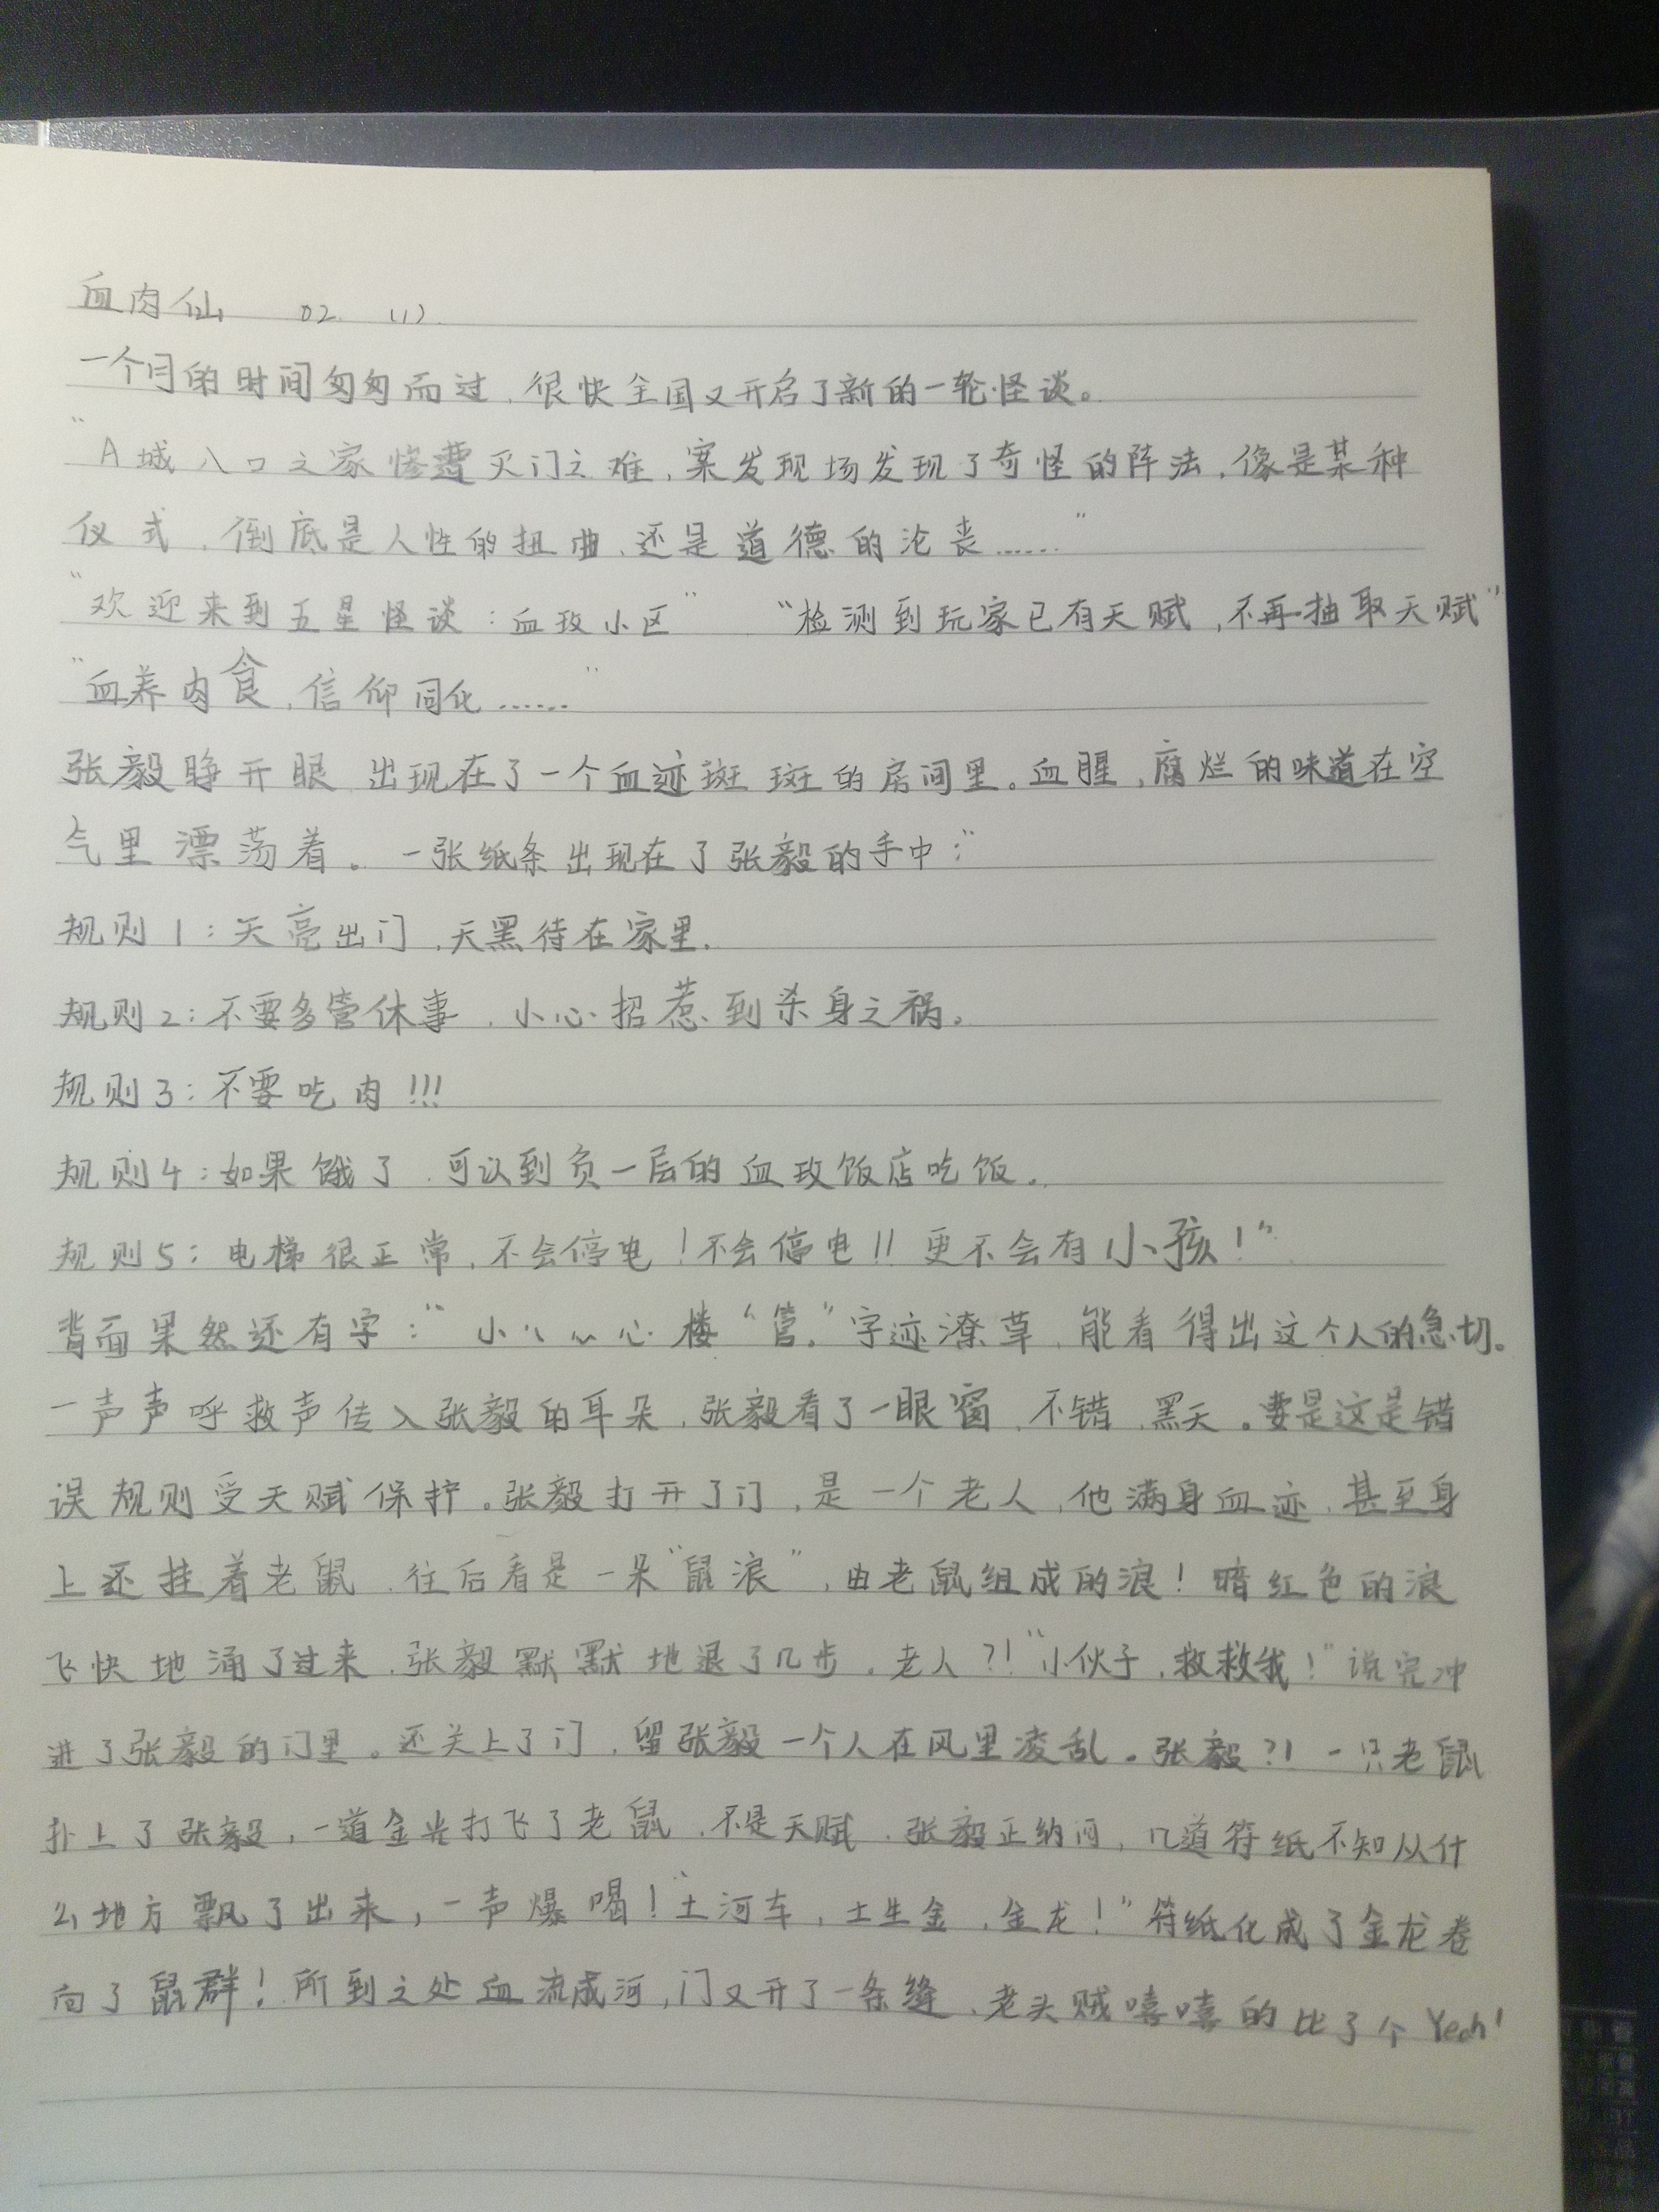 血肉仙 02 (1)
一个月的时间匆匆而过,很快全国又开启了新的一轮怪谈。
“A城八口之家惨遭灭门之难,案发现场发现了奇怪的阵法,像是某种
仪式,倒底是人性的扭曲,还是道德的沦丧……”
“欢迎来到五星怪谈:血玫小区” “检测到玩家已有天赋,不再抽取天赋”
“血养肉食,信仰同化……”
张毅睁开眼,出现在了一个血迹斑斑的房间里。血腥,腐烂的味道在空
气里漂荡着。一张纸条出现在了张毅的手中:“
规则1:天亮出门,天黑待在家里.
规则2:不要多管休事,小心招惹到杀身之祸。
规则3:不要吃肉!!!
规则4:如果饿了,可以到负一层的血玫饭店吃饭。
规则5:电梯很正常,不会停电!不会停电!!更不会有小孩!”
背面果然还有字:“小心心心楼“管。”字迹潦草,能看得出这个人的急切。
一声声呼救声传入张毅的耳朵,张毅看了一眼窗,不错,黑天。要是这是错
误规则受天赋保护。张毅打开了门,是一个老人,他满身血迹,甚至身
上还挂着老鼠,往后看是一朵“鼠浪”,由老鼠组成的浪!暗红色的浪
飞快地涌了过来,张毅默默地退了几步。老人?!“小伙子,救救我!”说完冲
进了张毅的门里。还关上了门,留张毅一个人在风里凌乱。张毅?!一只老鼠
扑上了张毅,一道金光打飞了老鼠,不是天赋,张毅正纳闷,几道符纸不知从什
么地方飘了出来,一声爆喝!“土河车,土生金,金龙!”符纸化成了金龙卷
向了鼠群!所到之处血流成河,门又开了一条缝,老头贼嘻嘻的比了个Yeah!